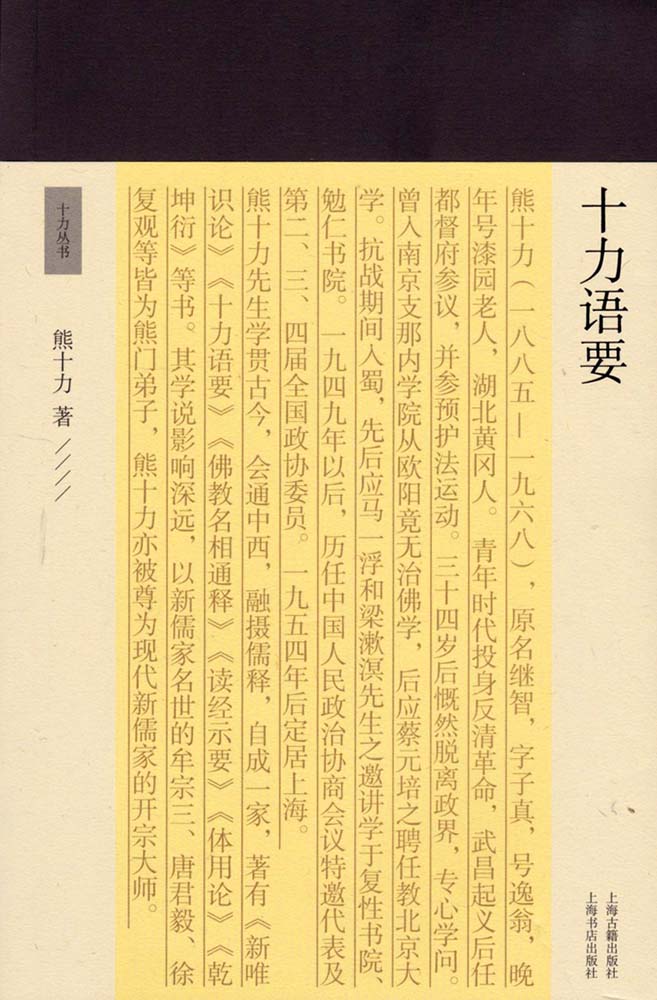 十力语要
熊十力（一八八五—一九六八），原名继智，字子真，号逸翁，晚
年号漆园老人，湖北黄冈人。青年时代投身反清革命，武昌起义后任
都督府参议，并参预护法运动。三十四岁后慨然脱离政界，专心学问。
曾入南京支那内学院从欧阳竟无治佛学，后应蔡元培之聘任教北京大
学。抗战期间入蜀，先后应马一浮和梁漱溟先生之邀讲学于复性书院、
勉仁书院。一九四九年以后，历任中国人民政治协商会议特邀代表及
第二、三、四届全国政协委员。一九五四年后定居上海。
熊十力先生学贯古今，会通中西，融摄儒释，自成一家，著有《新唯
识论》《十力语要》《佛教名相通释》《读经示要》《体用论》《乾
坤衍》等书。其学说影响深远，以新儒家名世的牟宗三、唐君毅、徐
复观等皆为熊门弟子，熊十力亦被尊为现代新儒家的开宗大师。
十力丛书
熊十力 著
上海古籍出版社
上海书店出版社